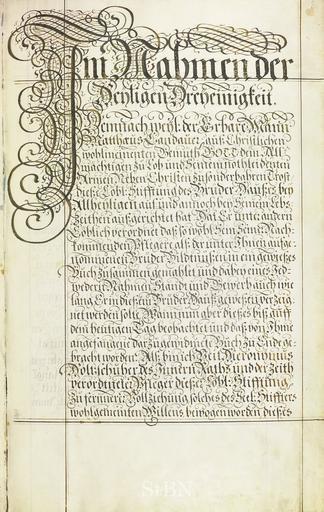 Im Nahmen der
Heyligen Dreyeinigkeit.
Demnach weyl: der Erbare Mann
Matthäus Landauer, auß Christlichen
wohlmeinenten Gemüth GOTT dem All-
mächtigen zu Lob und Seinen nothleidenten
Armen Neben Christen zu sonderbahren Trost
Diese Löbl: Stifftung des Bruder Haußes bey
Allheyligen auf und annoch bey Seinem Lebs
Zeithen aufgerichtet hat. Daß Er unter andern
Löblich verordnet daß so wohl Sein Seine Nach-
kommenden Pflegere als der unter Ihnen aufge-
nommenen Brüder Bildtnußen in ein gewießes
Buch zusammen gemahlet und dabey eines Jed-
weders Nahmen Stand und Gewerb auch wie
lang Er in diesem Brüder Hauß gewesen verzeig-
net werden solte Wann nun aber dießes biß auff
den heutigen Tag beobachtet und das von Ihme
angefangene darzu gewidmete Buch zu Ende ge-
bracht worden. Alß bin ich Veit Hieronimus
Holtzschuher des Innern Raths und der Zeith
verordneter Pfleger dießer Löbl: Stifftung
Zu fernerer Vollziehung solches des Seel: Stiffters
wohlgemeinten Willens bewogen worden dießes
StBN